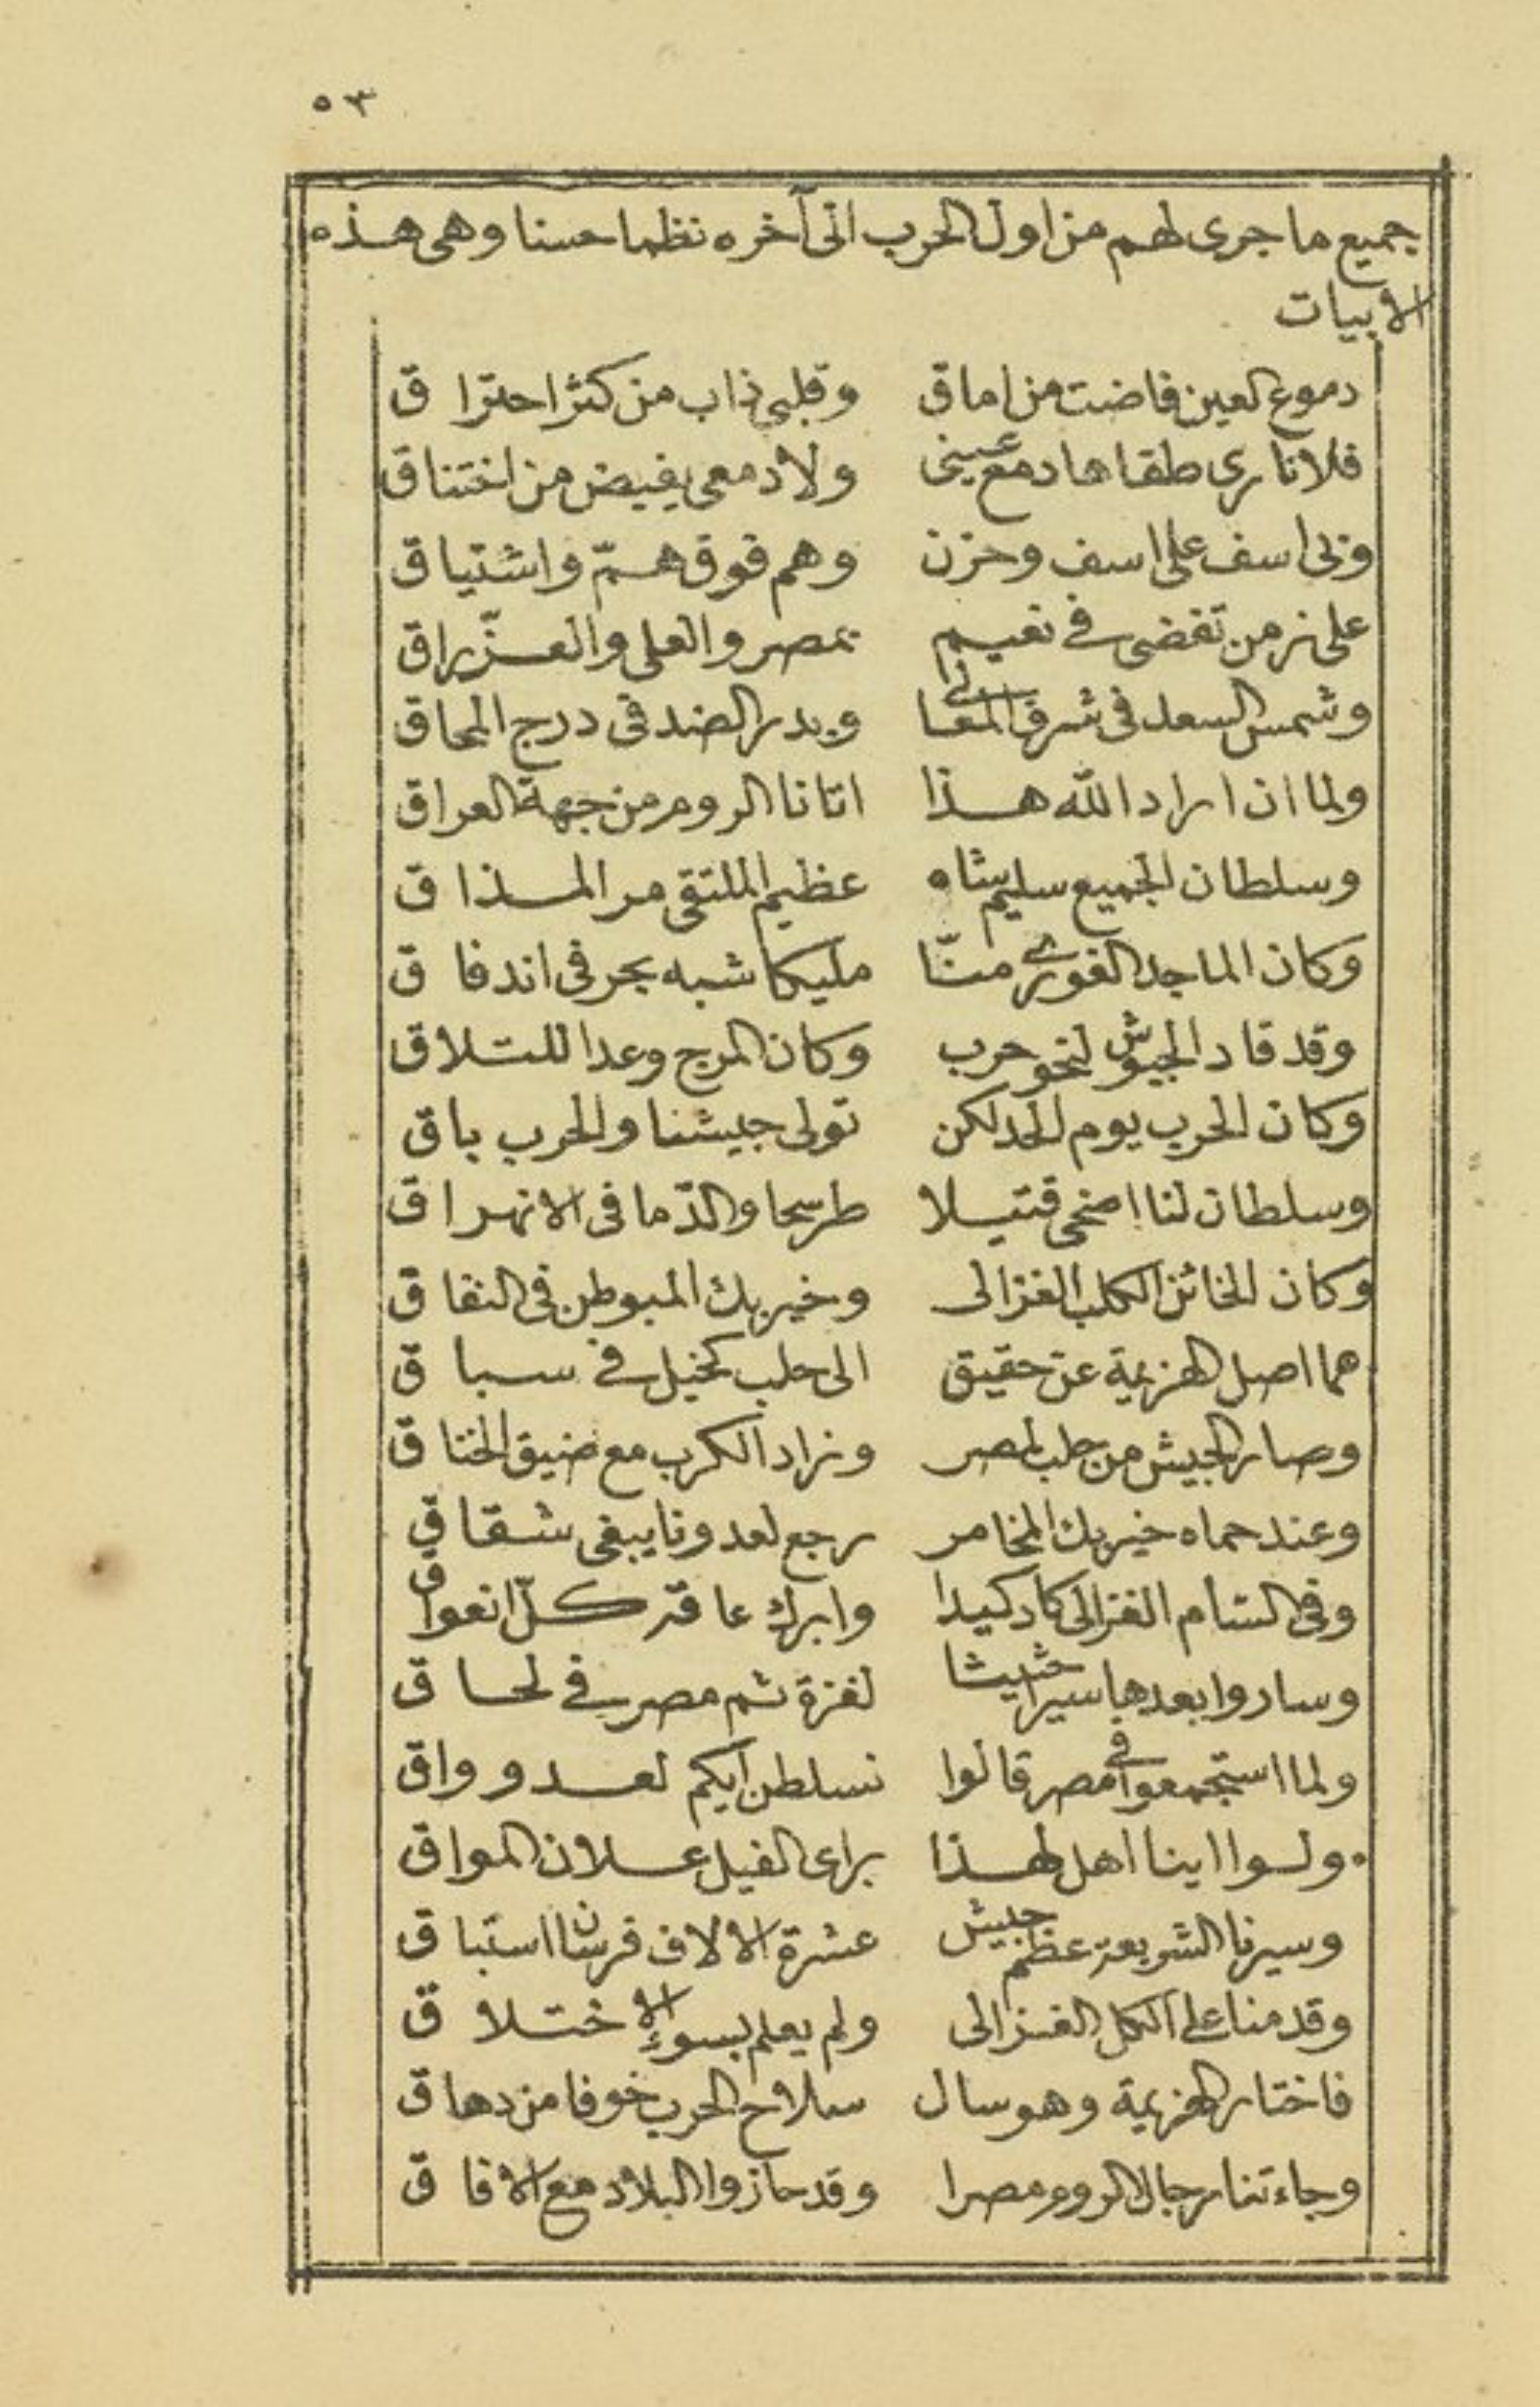 ٥٣
جميع ما جرى لهم من اول الحرب الى آخره نظما حسنا وهى هذه
الابيات
دموع العين فاضت من اماق وقلبى ذاب من كثر احتراق
فلا نارى طفاها دمع عينى ولا دمعى يفيض من اختناق
ولى اسف على اسف وحزن وهم فوق همّ واشتياق
على زمن تقضى فى نعيم بمصر والعلى والعزّ راق
وشمس السعد فى شرف المعالى وبدر الضد فى درج المحاق
ولما ان اراد الله هذا اتانا الروم من جهة العراق
وسلطان الجميع سليم شاه عظيم الملتقى مر المذاق
وكان الماجد الغورى منّا مليكا شبه بحر فى اندفاق
وقد قاد الجيوش لنحو حرب وكان المرج وعدا للتلاق
وكان الحرب يوم الحد لكن تولى جيشنا والحرب باق
وسلطان لنا اضحى قتيلا طريحا والدّما فى الانهراق
وكان الخائن الكلب الغزالى وخير بك المبوطن فى النفاق
هما اصل الهزيمة عن حقيق الى حلب كخيل فى سباق
وصار الجيش من حلب لمصر وزاد الكرب مع ضيق الخناق
وعند حماه خير بك المخامر رجع لعدونا يبغى شقاق
وفى الشام الغزالى كاد كيدا وابرك عاقه كلّ انعواق
وساروا بعدها سيرا حثيثا لغزة ثم مصر فى لحاق
ولما استجمعوا فى مصر قالوا نسلطن ايكم لعدو واق
ولسوا اينا اهل لهذا براى الفيل علان المواق
وسيرنا الشريعة عظم جيش عشرة الالاف فرسانا استباق
وقدمنا على الكل الغزالى ولم يعلم بسوء الاختلاق
فاختار الهزيمة وهو سال سلاح الحرب خوفا من دهاق
وجاءتنا رجال الروم مصرا وقد حازوا البلاد مع الافاق